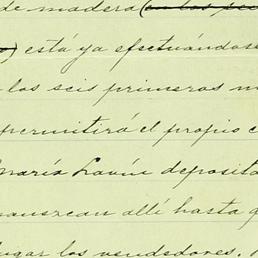 de madera (en los pre
) está ya efectuándose
los seis primeros m
permitirá el propio c
María Lavín deposita
manezcan allí hasta q
lugar los vendedores.